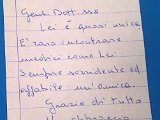 Gent. Dott.ssa
Lei è quasi unica
È raro incontrare
medici come Lei
Sempre sorridente ed
affabile: un'amica.
Grazie di tutto
Un abbraccio